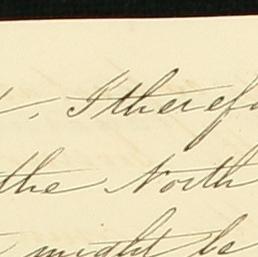 I theref
the North
might be